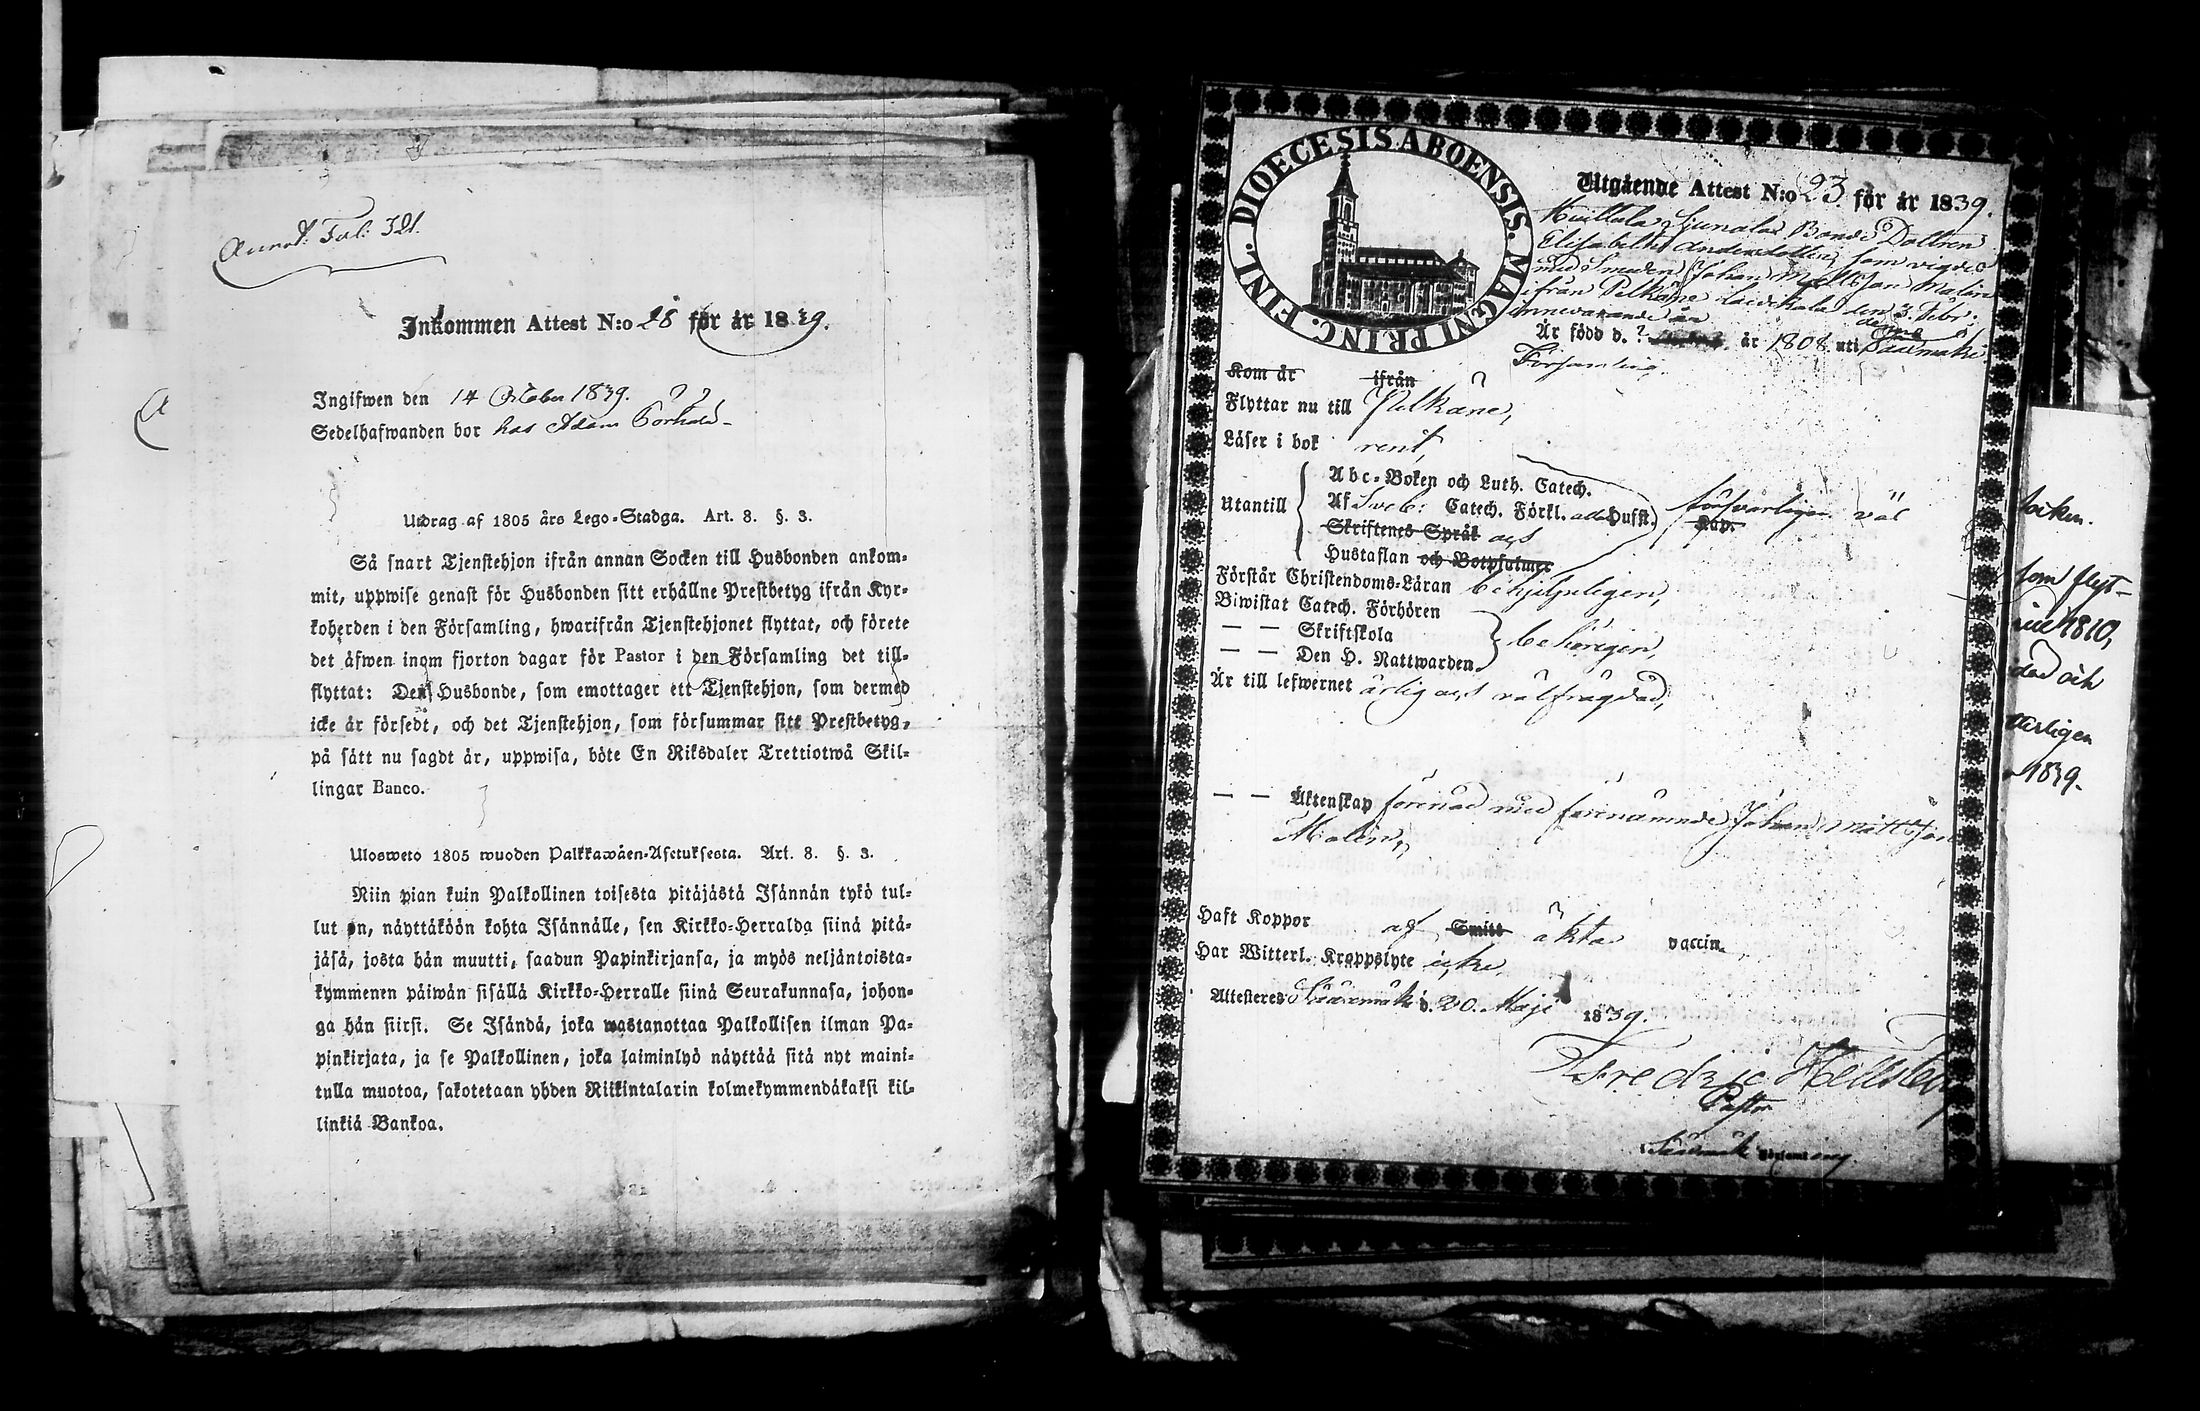 Annot. Fol: 321.
Inkommen Attest N:o 28 för år 1839.
Ingifwen den 14 October 1839.
Sedelhafwanden bor hos Adam
Utdrag af 1805 års Lego-Stadga. Art. 8. §. 3.
Så snart Tjenstehjon ifrån annan Socken till Husbonden ankom-
mit, uppwise genast för Husbonden sitt erhållne Prestbetyg ifrån Kyr-
koherden i den Församling, hwarifrån Tjenstehjonet flyttat, och förete
det äfwen inom fjorton dagar för Pastor i den Församling det till-
flyttat: Den Husbonde, som emottager ett Tjenstehjon, som dermed
icke är försedt, och det Tjenstehjon, som försummar sitt Prestbetyg,
på sätt nu sagdt är, uppwisa, böte En Riksdaler Trettiotwå Skil-
lingar Banco.
Ulosweto 1805 wuoden Palkkawäen-Asetuksesta. Art. 8. §. 3.
Niin pian kuin Palkollinen toisesta pitäjästä Isännän tykö tul-
lut on, näyttäköön kohta Isännälle, sen Kirkko-Herralda siinä pitä-
jäsä, josta hän muutti, saadun Papinkirjansa, ja myös neljäntoista-
kymmenen päiwän sisällä Kirkko-Herralle siinä Seurakunnasa, johon-
ga hän siirsi. Se Isändä, joka wastanottaa Palkollisen ilman Pa-
pinkirjata, ja se Palkollinen, joka laiminlyö näyttää sitä nyt maini-
tulla muotoa, sakotetaan yhden Riikintalarin kolmekymmendäkaksi kil-
linkiä Bankoa.
FINL. DIOECESIS ABOENSIS. MAGNI PRINC.
Utgående Attest N:o 23 för år 1839.
Bonde Dottren
Elisabeth Andersdotter, som vigdes
med Smeden Johan Mattsson Malin
ifrån Pelkäne den 3. Febr.
innevarande år
Är född d. ? år 1808 uti denna Sääxmäki
Församling.
Kom år ifrån
Flyttar nu till Pelkäne,
Läser i bok rent,
Utantill
Abc-Boken och Luth. Catech.
Af Sveb: Catech. Förkl. alla Hufst. försvarligen väl
Skriftenes Språk och Kap.
Hustaflan och Botpsalmer
Förstår Christendoms-Läran behjelpeligen,
Biwistat Catech. Förhören
— — Skriftskola behörigen,
— — Den H. Nattwarden
Är till lefwernet ärlig och välfrägdad,
— — Äktenskap förenad med förenämnde Johan Mattsson
Malin,
Haft Koppor af Smitt äkta vaccin.
Har Witterl. Kroppslyte icke,
Attesteres Sääxmäki d. 20. Maji 1839.
Fredric Hellsten
Pastor
i Sääxmäki Församling.
socken.
som flyt-
1810,
dad och
1839.